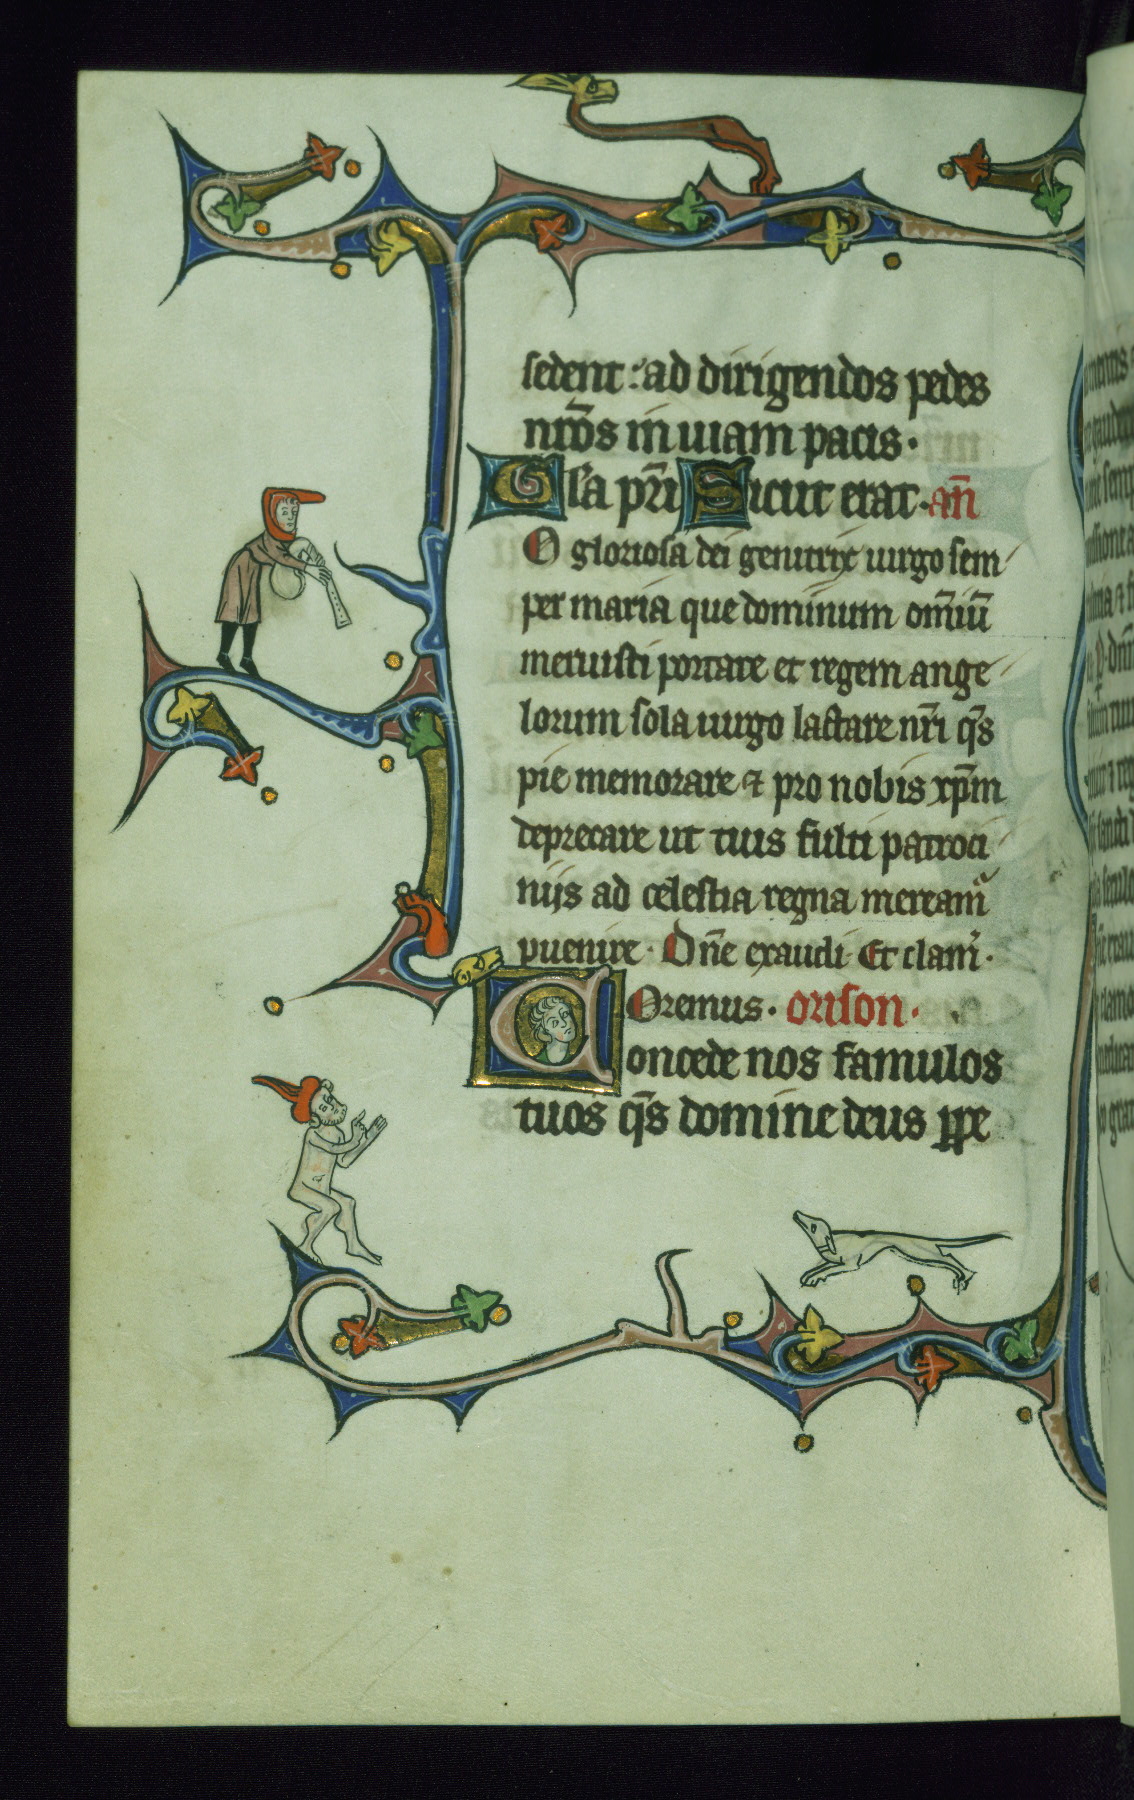 sedent : ad dirigendos pedes
nr̃os in uiam pacis ·
Gl'a pr̃i Sicut erat · añ
O gloriosa dei genitrix uirgo sem
per maria que dominum om̃iũ
meruisti portare et regem ange
lorum sola uirgo lactare nr̃i q̃s
pie memorare ⁊ pro nobis xp̃m
deprecare ut tuis fulti patroci
nijs ad celestia regna meream̃
puenire · Dñe exaudi · Et clam̃ ·
Oremus · orison ·
Concede nos famulos
tuos q̃s domine deus ꝑpe